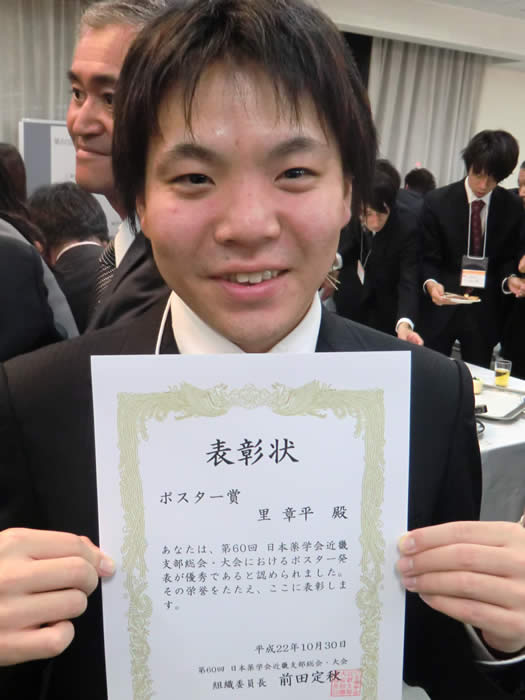 表彰状
ポスター賞
里 章平 殿
あなたは、第60回 日本薬学会近畿
支部総会・大会におけるポスター発
表が優秀であると認められました。
その栄誉をたたえ、ここに表彰しま
す。
平成22年10月30日
第60回 日本薬学会近畿支部総会・大会
組織委員長 前田定秋